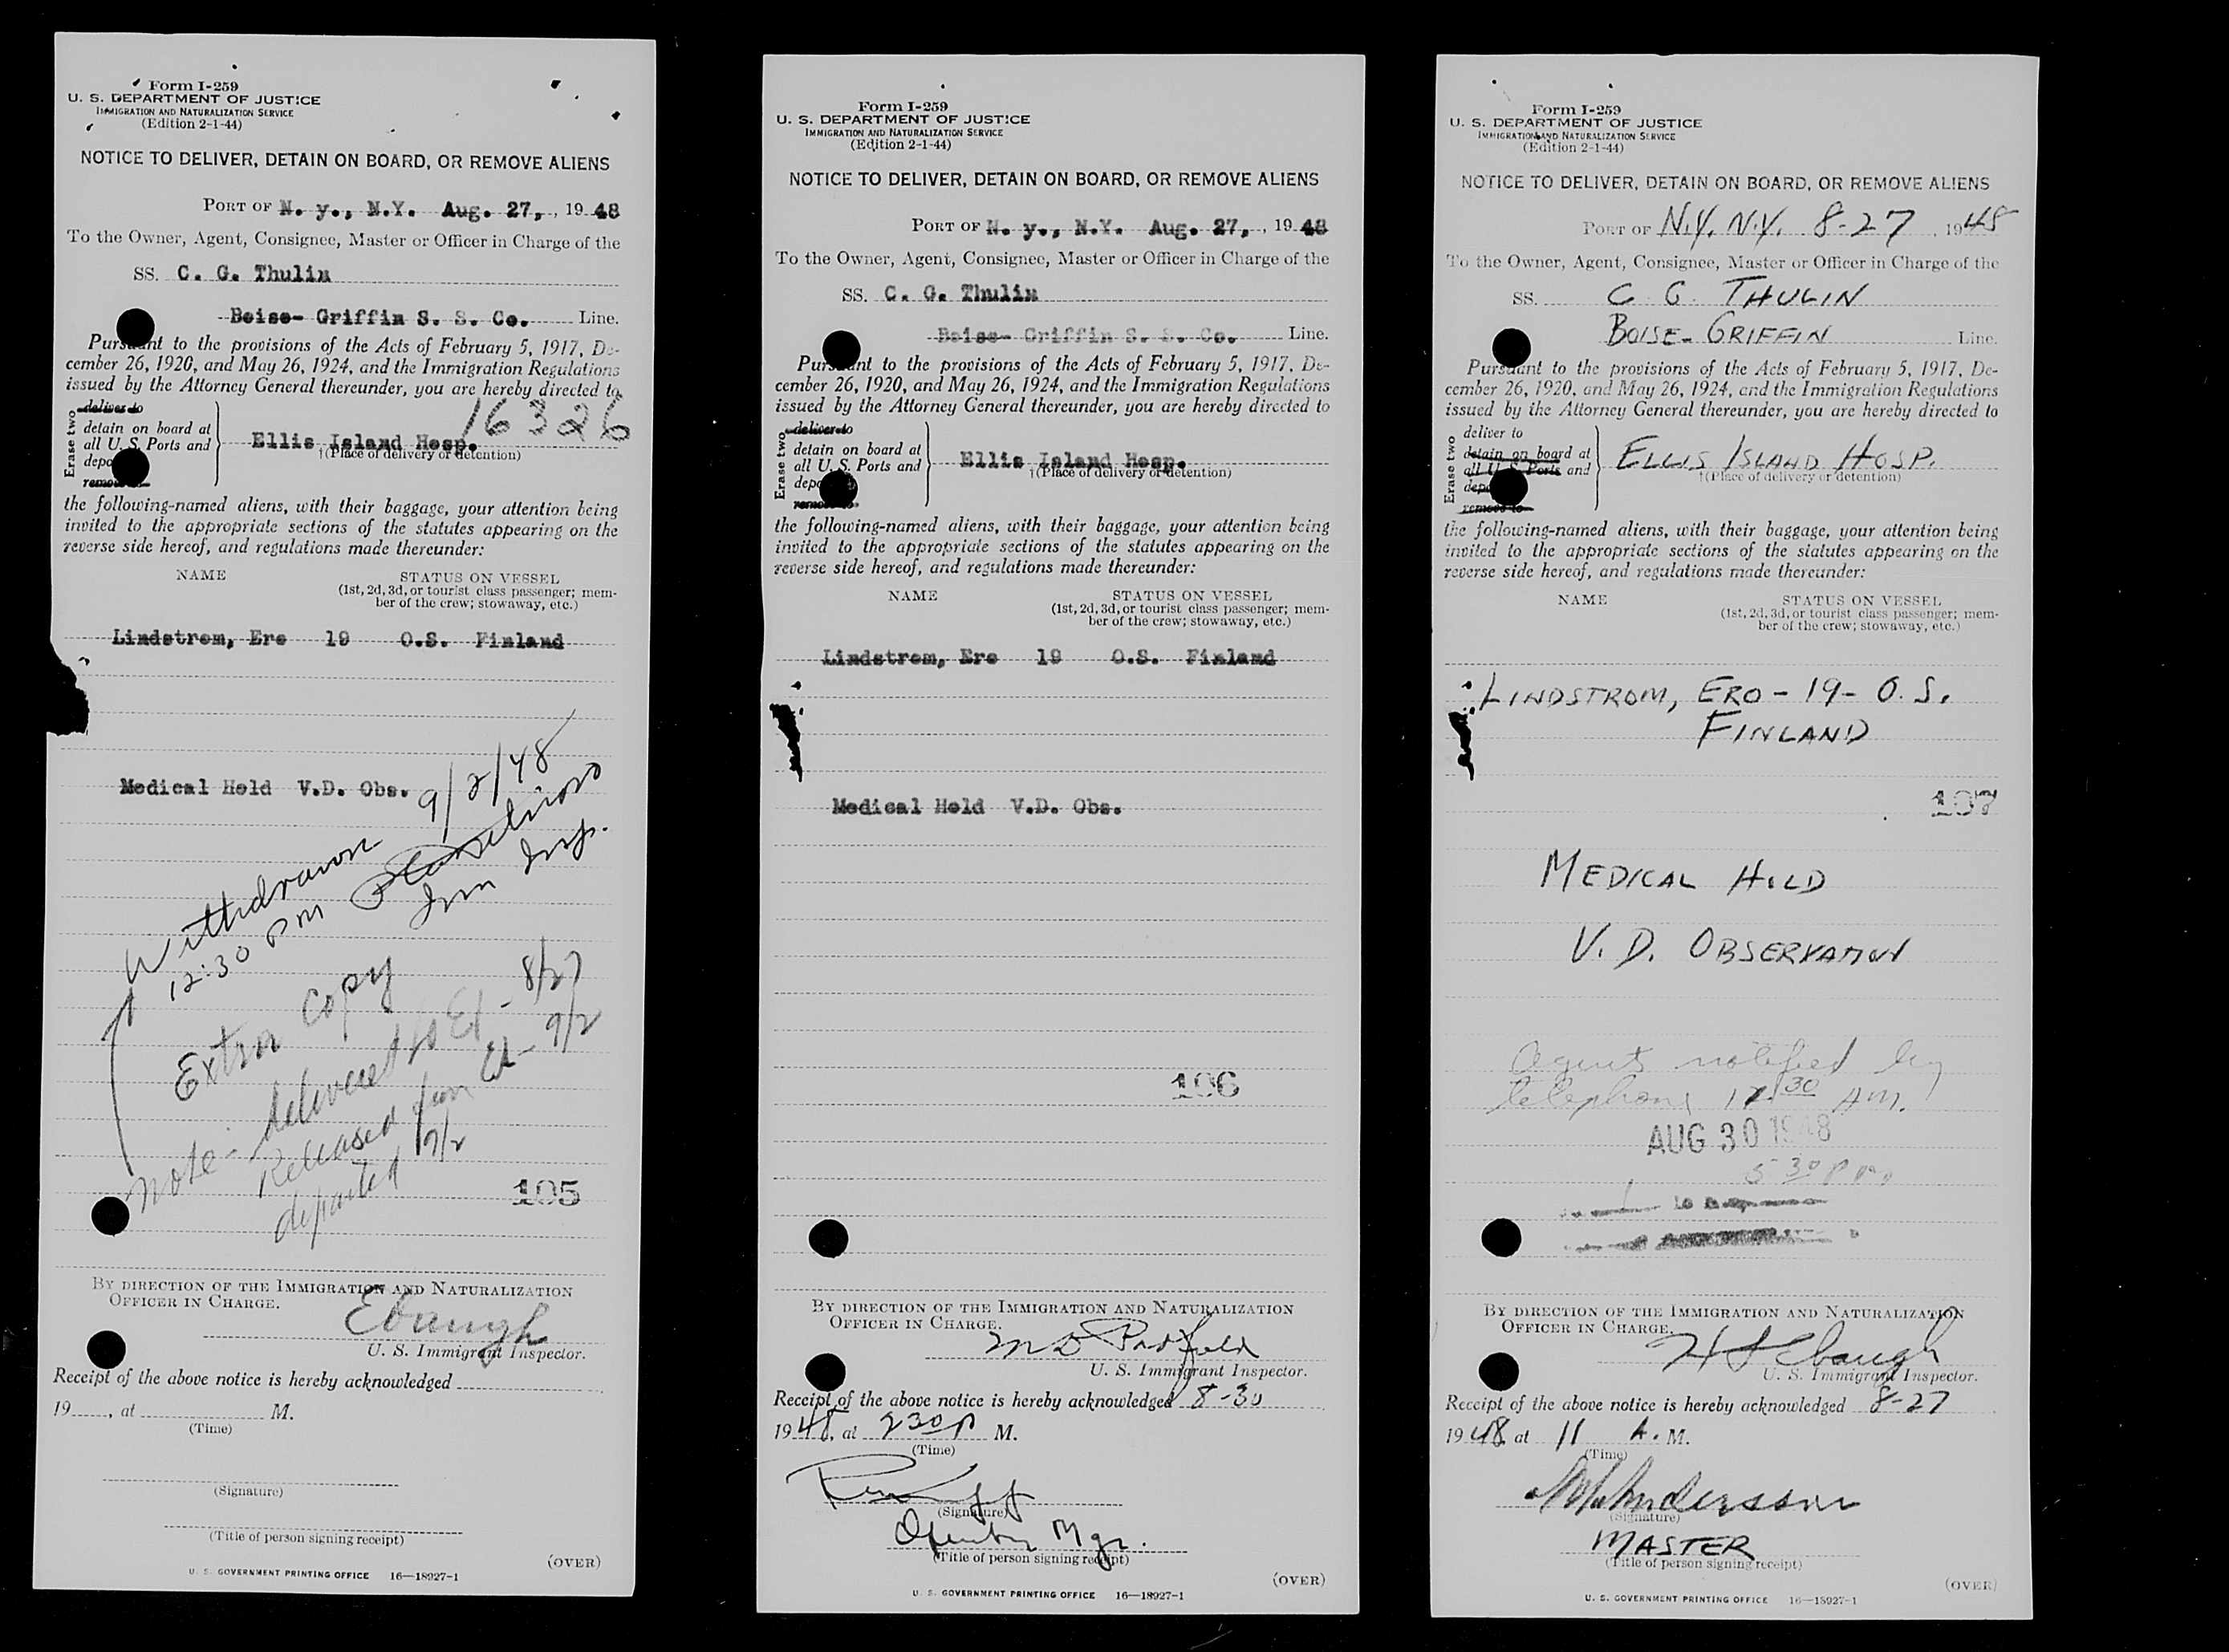 Form I-259
U. S. DEPARTMENT OF JUSTICE
IMMIGRATION AND NATURALIZATION SERVICE
(Edition 2-1-44)
NOTICE TO DELIVER, DETAIN ON BOARD, OR REMOVE ALIENS
PORT OF N. y., N.Y. Aug. 27, , 19 48
To the Owner, Agent, Consignee, Master or Officer in Charge of the
SS. C. G. Thulin
Boise- Griffin S. S. Co. Line.
Pursuant to the provisions of the Acts of February 5, 1917, De-
cember 26, 1920, and May 26, 1924, and the Immigration Regulations
issued by the Attorney General thereunder, you are hereby directed to
16326
Erase two
deliver to
detain on board at
all U. S. Ports and
depo
remove to
Ellis Island Hosp.
†(Place of delivery or detention)
the following-named aliens, with their baggage, your attention being
invited to the appropriate sections of the statutes appearing on the
reverse side hereof, and regulations made thereunder:
NAME STATUS ON VESSEL
(1st, 2d, 3d, or tourist class passenger; mem-
ber of the crew; stowaway, etc.)
Lindstrom, Ero 19 O.S. Finland
Medical Hold V.D. Obs.
Withdrawn 9/2/48
12:30 PM
Imm Insp.
Extra Copy
Note- delivered to EI - 8/27
Released from EI - 9/2
departed 9/2
105
BY DIRECTION OF THE IMMIGRATION AND NATURALIZATION
OFFICER IN CHARGE.
Ebaugh
U. S. Immigrant Inspector.
Receipt of the above notice is hereby acknowledged
19 , at M.
(Time)
(Signature)
(Title of person signing receipt)
(OVER)
U. S. GOVERNMENT PRINTING OFFICE 16—18927-1
Form I-259
U. S. DEPARTMENT OF JUSTICE
IMMIGRATION AND NATURALIZATION SERVICE
(Edition 2-1-44)
NOTICE TO DELIVER, DETAIN ON BOARD, OR REMOVE ALIENS
PORT OF N. y., N.Y. Aug. 27, , 19 48
To the Owner, Agent, Consignee, Master or Officer in Charge of the
SS. C. G. Thulin
Boise- Griffin S. S. Co. Line.
Pursuant to the provisions of the Acts of February 5, 1917, De-
cember 26, 1920, and May 26, 1924, and the Immigration Regulations
issued by the Attorney General thereunder, you are hereby directed to
Erase two
deliver to
detain on board at
all U. S. Ports and
depo
remove to
Ellis Island Hosp.
†(Place of delivery or detention)
the following-named aliens, with their baggage, your attention being
invited to the appropriate sections of the statutes appearing on the
reverse side hereof, and regulations made thereunder:
NAME STATUS ON VESSEL
(1st, 2d, 3d, or tourist class passenger; mem-
ber of the crew; stowaway, etc.)
Lindstrom, Ero 19 O.S. Finland
Medical Hold V.D. Obs.
106
BY DIRECTION OF THE IMMIGRATION AND NATURALIZATION
OFFICER IN CHARGE.
M D Padfield
U. S. Immigrant Inspector.
Receipt of the above notice is hereby acknowledged 8-30
19 48, at 2 30 P M.
(Time)
(Signature)
Mgr.
(Title of person signing receipt)
(OVER)
U. S. GOVERNMENT PRINTING OFFICE 16—18927-1
Form I-259
U. S. DEPARTMENT OF JUSTICE
IMMIGRATION AND NATURALIZATION SERVICE
(Edition 2-1-44)
NOTICE TO DELIVER, DETAIN ON BOARD, OR REMOVE ALIENS
PORT OF N.Y. N.Y. 8-27 , 1948
To the Owner, Agent, Consignee, Master or Officer in Charge of the
SS. C. G. THULIN
BOISE- GRIFFIN Line.
Pursuant to the provisions of the Acts of February 5, 1917, De-
cember 26, 1920, and May 26, 1924, and the Immigration Regulations
issued by the Attorney General thereunder, you are hereby directed to
Erase two
deliver to
detain on board at
all U S Ports and
depo
remove to
ELLIS ISLAND HOSP.
†(Place of delivery or detention)
the following-named aliens, with their baggage, your attention being
invited to the appropriate sections of the statutes appearing on the
reverse side hereof, and regulations made thereunder:
NAME STATUS ON VESSEL
(1st, 2d, 3d, or tourist class passenger; mem-
ber of the crew; stowaway, etc.)
LINDSTROM, ERO - 19 - O.S.
FINLAND
107
MEDICAL HOLD
V. D. OBSERVATION
Agents notified by
telephone AM.
AUG 30 1948
5 30 PM
BY DIRECTION OF THE IMMIGRATION AND NATURALIZATION
OFFICER IN CHARGE.
H S Ebaugh
U. S. Immigrant Inspector.
Receipt of the above notice is hereby acknowledged 8-27
19 48, at 11 A. M.
(Time)
Andersson
(Signature)
MASTER
(Title of person signing receipt)
(OVER)
U. S. GOVERNMENT PRINTING OFFICE 16—18927-1